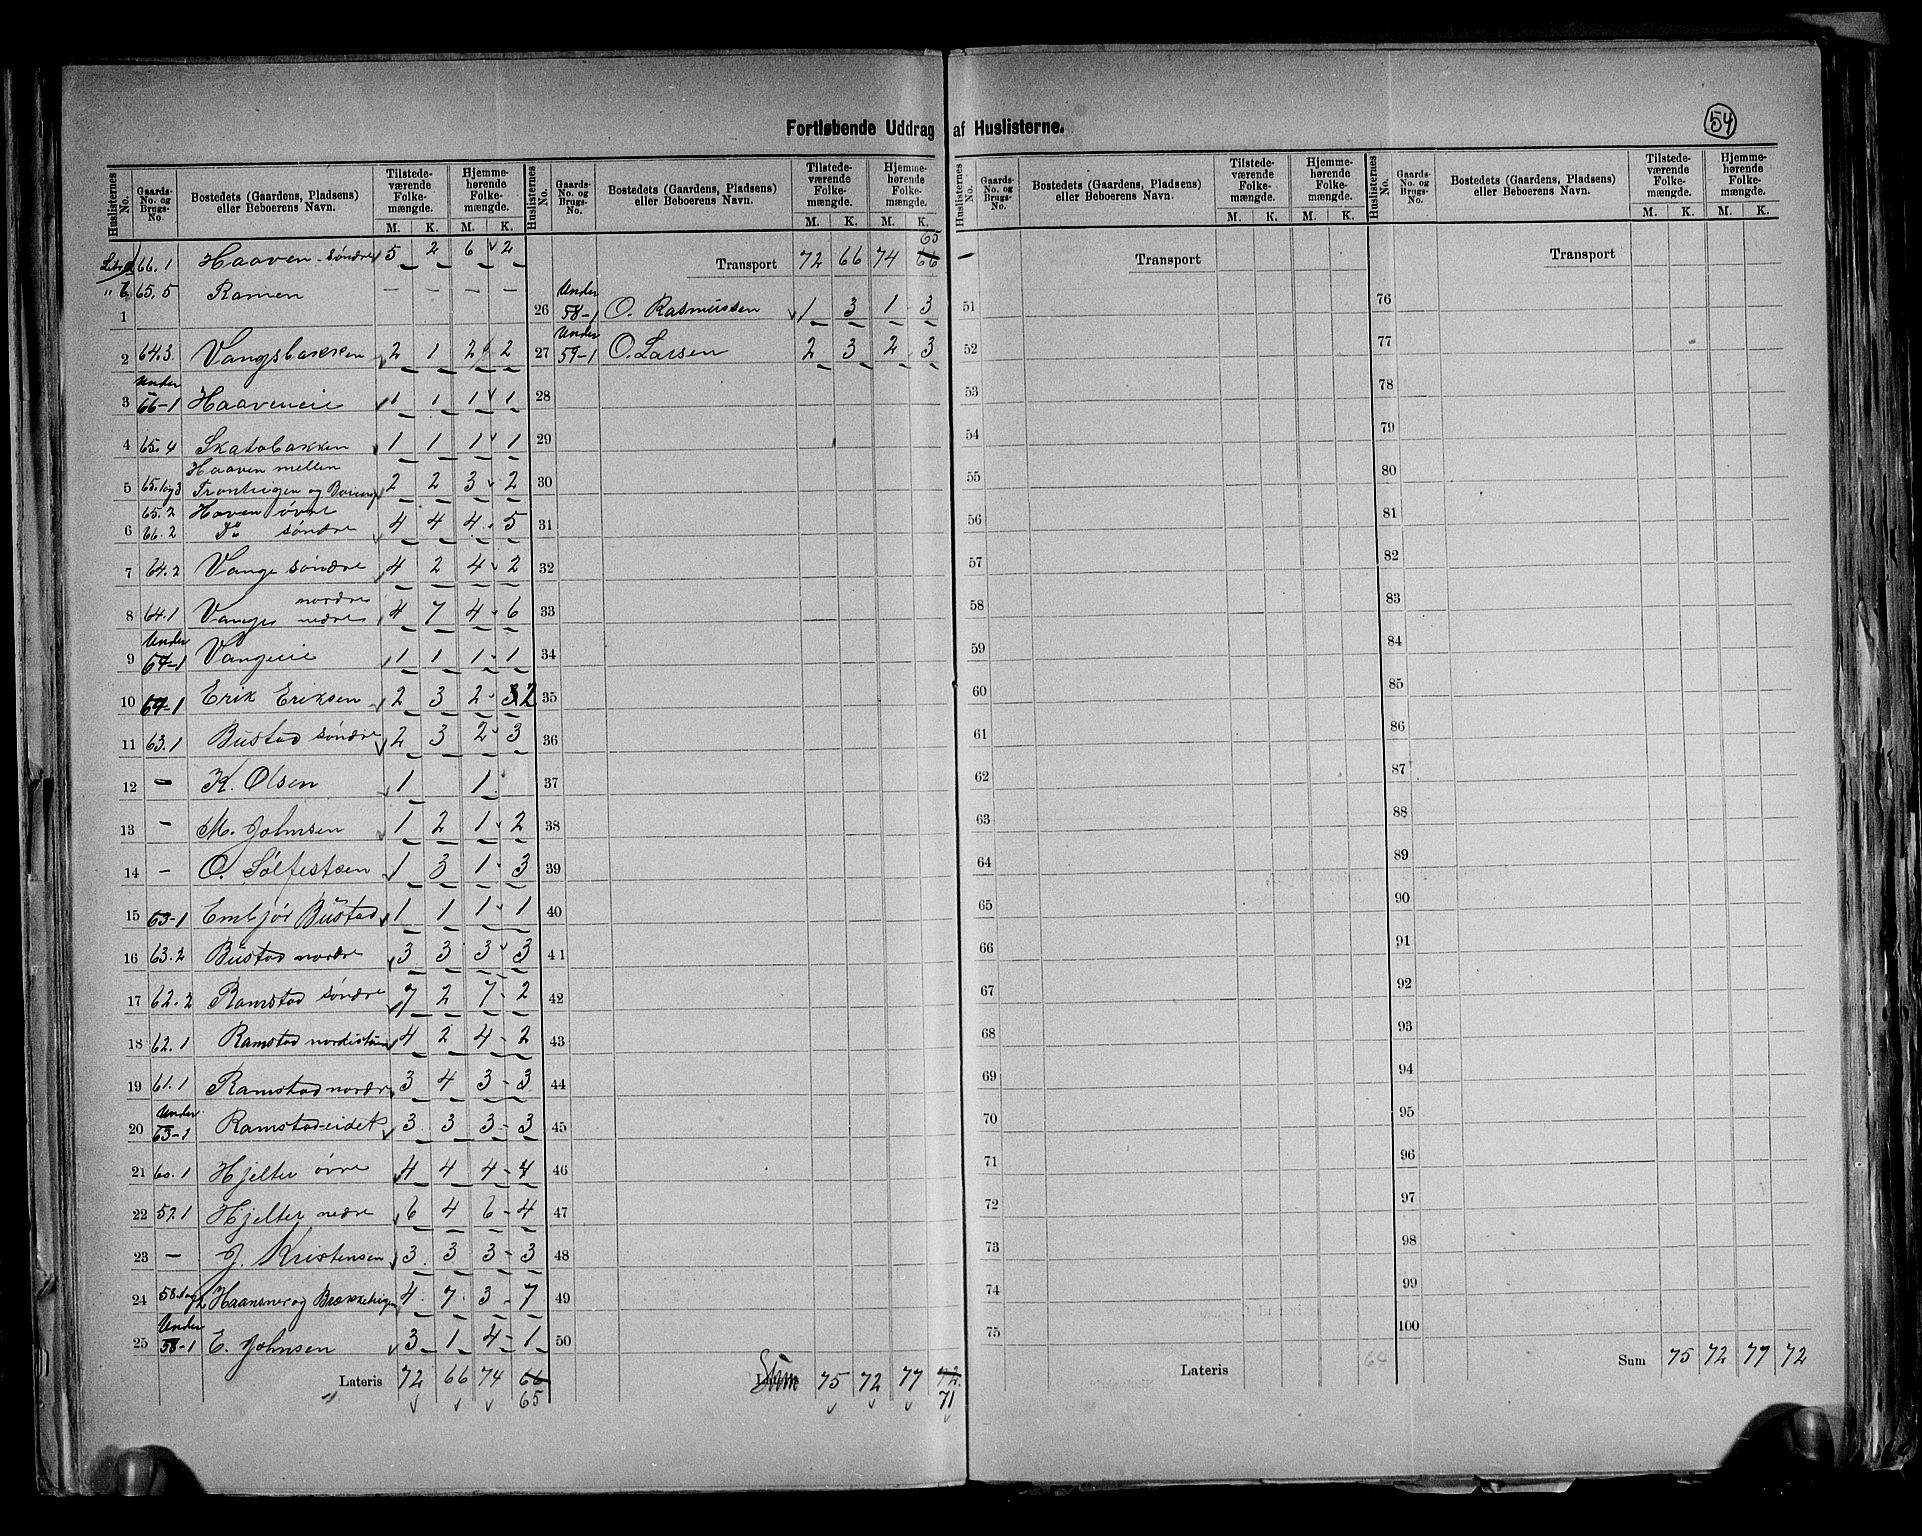 Fortløbende Uddrag af Huslisterne.
54
Huslisternes No. Gaards-No. og Brugs-No. Bostedets (Gaardens, Pladsens) eller Beboerens Navn. Tilstedeværende Folkemængde. M. K. Hjemmehørende Folkemængde. M. K.
Litr a 66.1 Haaven søndre 5 2 6 2
" b 65.5 Ramen — — — —
1
2 64.3 Vangsbakken 2 1 2 2
3 Under 66-1 Haaveneie 1 1 1 1
4 65.4 Skatabakken 1 1 1 1
Haaven mellem
5 65.1og3 Trontrigen og Boeing 2 2 3 2
65.2 Haven øvre
6 66.2 Do søndre 4 4 4 5
7 64.2 Vange søndre 4 2 4 2
8 64.1 Vange nordre nedre 4 7 4 6
9 Under 64-1 Vangeeie 1 1 1 1
10 64-1 Erik Eriksen 2 3 2 3 2
11 63.1 Bustad søndre 2 3 2 3
12 — K. Olsen 1 1
13 — M. Johnsen 1 2 1 2
14 — O. Sølfestsen 1 3 1 3
15 63-1 Embjør Bustad 1 1 1 1
16 63.2 Bustad nordre 3 3 3 3
17 62.2 Ramstad søndre 7 2 7 2
18 62.1 Ramstad nordistuen 4 2 4 2
19 61.1 Ramstad nordre 3 4 3 3
20 Under 63-1 Ramstadeidet 3 3 3 3
21 60.1 Hjelter øvre 4 4 4 4
22 59.1 Hjelter nedre 6 4 6 4
23 — J. Kristensen 3 3 3 3
24 58.1og2 Haansnar og Brækkehigen 4 7 3 7
25 Under 58-1 E. Johnsen 3 1 4 1
Lateris 72 66 74 66
65
Huslisternes No. Gaards-No. og Brugs-No. Bostedets (Gaardens, Pladsens) eller Beboerens Navn. Tilstedeværende Folkemængde. M. K. Hjemmehørende Folkemængde. M. K.
65
Transport 72 66 74 66
26 Under 58-1 O. Rasmussen 1 3 1 3
27 Under 59-1 O. Larsen 2 3 2 3
28
29
30
31
32
33
34
35
36
37
38
39
40
41
42
43
44
45
46
47
48
49
50
Sum 75 72 77 72
71
Huslisternes No. Gaards-No. og Brugs-No. Bostedets (Gaardens, Pladsens) eller Beboerens Navn. Tilstedeværende Folkemængde. M. K. Hjemmehørende Folkemængde. M. K.
— Transport
51
52
53
54
55
56
57
58
59
60
61
62
63
64
65
66
67
68
69
70
71
72
73
74
75
Lateris
64
Huslisternes No. Gaards-No. og Brugs-No. Bostedets (Gaardens, Pladsens) eller Beboerens Navn. Tilstedeværende Folkemængde. M. K. Hjemmehørende Folkemængde. M. K.
Transport
76
77
78
79
80
81
82
83
84
85
86
87
88
89
90
91
92
93
94
95
96
97
98
99
100
Sum 75 72 77 72